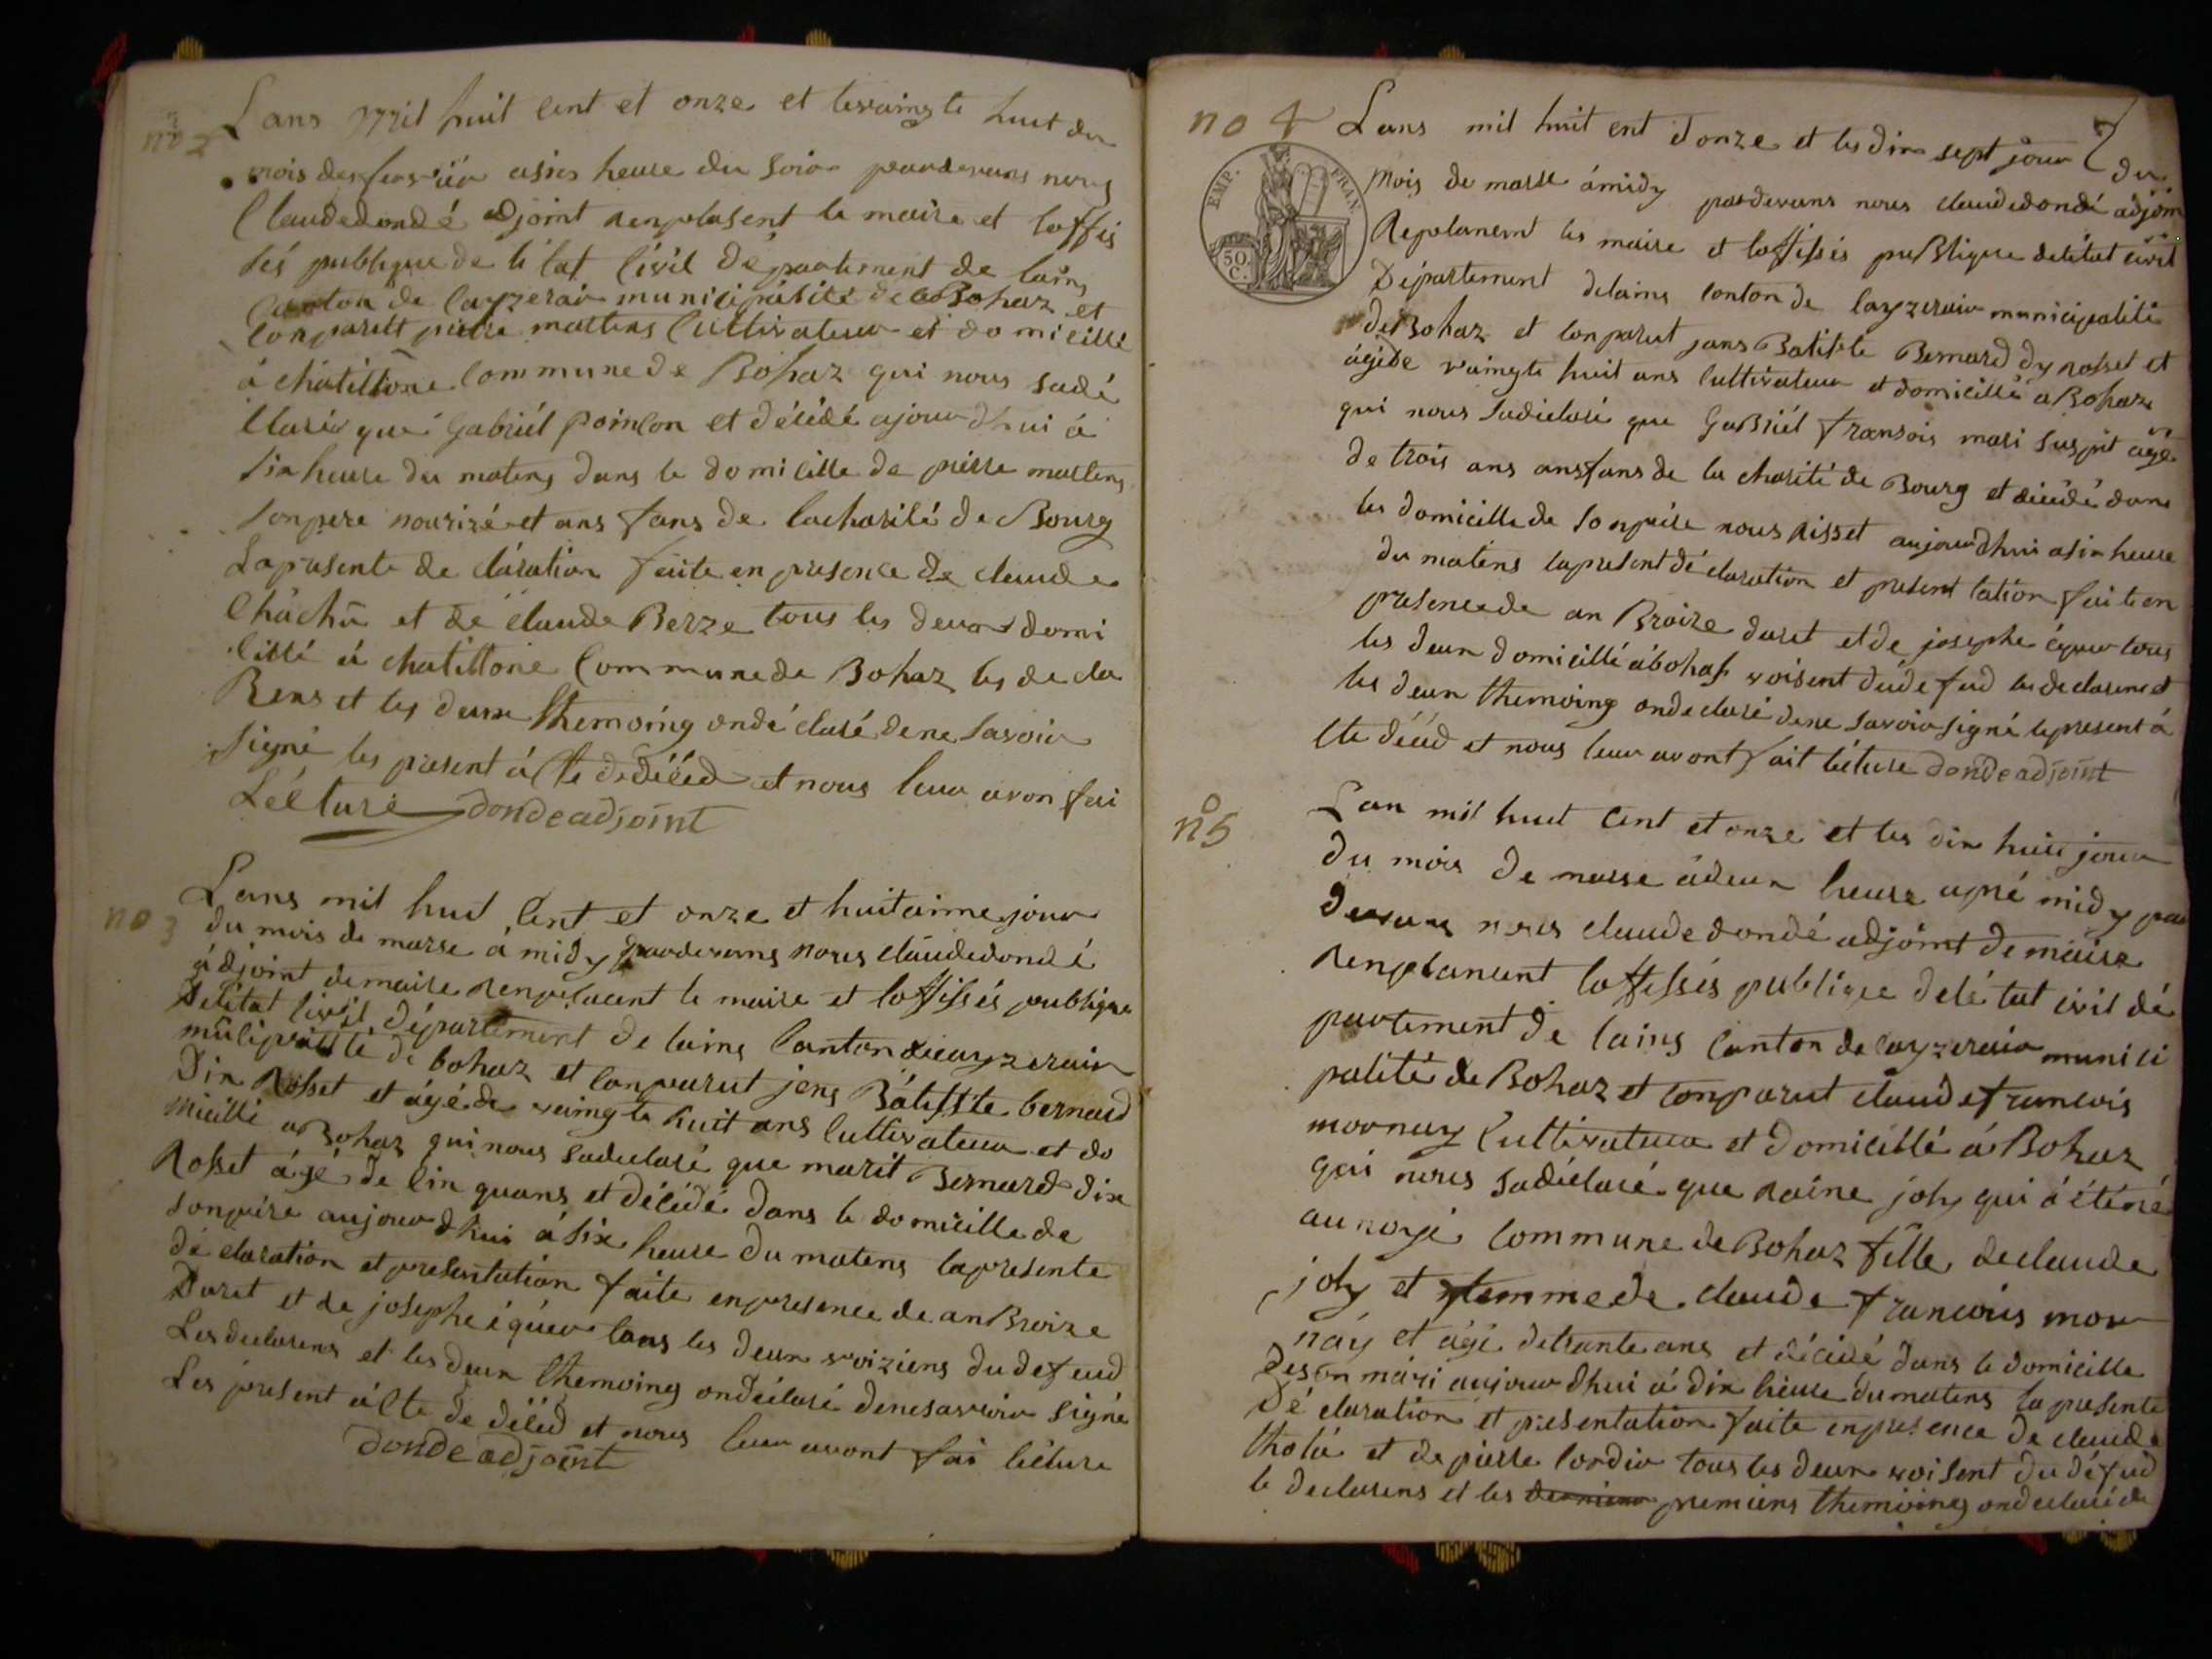 no 2
Lans mil huit cent et onze et levaingte huit du
mois des fevriér asies heure du soir pardevans nous
Claudedondé adjoint renplasent le maire et loffis
sés publique de létat civil département de lains
canton de cayzeriar municipasité de Bohaz et
conparett pierre martens Cultivateur et domicillé
á chátillone Commune de Bohaz qui nous sadé
claré que Gabriél poinson et décédé ajourdhui á
six heure du matens dans le domicille de pierre martens
sonpere nourizé et ans fans de lacharité de Bourg
Lapresente de claration faite en presence de claude
Cháchú et de claude Berze tous les deux domi
cillé á chatillone Commune de Bohaz les decla
Rens et les deux themoing ondé claré dene savoir
signé les present á cte dedéced et nous leur avon fai
Lécture dondeadjoint
no 3
Lans mil huit Cent et onze et huitaime jour
du mois de marse á midy pardevans nous claudedondé
ádjoint demaire renplacent le maire et loffissés publique
delétat civil département de lains Canton decayzeriair
de bohaz et conparut jens Bátisste bernard
Dix Rosset et ágé de vaingte huit ans Cultivateur et do
micillé a Bohaz qui nous sadeclaré que marit Bernard dix
Rosset ágé de cin quans et décédé dans le domicille de
sonpére aujourdhui á six heure du matens lapresente
dé claration et presentation faite enpresence de anBroize
Duret et de josephe équér tous les deux voiziens du defeud
Les declarens et les deux themoing ondéclaré denesavoir signé
Les present ácte de déced et nous leur avont fai lécture
donde adjoint
7
no 4
EMP. FRAN.
50. C.
Lans mil huit cent donze et les dix sept jour du
mois de marse ámidy pardevans nous claudedondé adjoin
Replanent les maire et loffissés puBlique delétat civil
Département delains Conton de Cayzeriair municipalité
de Bohaz et conparut jans Batiste Bernard dy rosset et
ágéde vaingte huit ans Cultivateur et domicillé a Bohaz
qui nous sadéclaré que GaBriél fransois mari susprit agé
de trois ans ansfans de la charité de Bourg et décédé dans
les domicille de sonpére nous risset aujourdhui asix heure
du matins lapresent dé claration et present tation faiten
presencede an Broize duret et de josephe équer tous
les deux domicillé ábohas voisent dude fud les declarens et
les deux themoing ondeclaré dene savoir signé lepresent á
cte décéd et nous leur avont fait lécture dondeadjoint
no 5
Lan mil huit cent et onze et les dix huit jour
du mois de marse ádeux heure apré midy par
devans nous claudedondé adjoint demaire
renplancent loffissés publique delé tat civil dé
partement de lains Canton de cayzeriair munici
palité de Bohaz et conparut claude francois
mornay Cultivateur et domicillé á Bohaz
qui nous sadéclaré que raine joly qui á éténé
au Commune de Bohaz fille declaude
joly et femmede claude francois mor
náy et ágé detrante ans et décédé dans le domicille
deson mári aujourdhui á dix heure dumatens lapresente
Dé claration et presentation faite enpresence de claude
et de pierre Cordier tous les deux voisent du défud
le declarens et les premiers themoing ondeclaré de